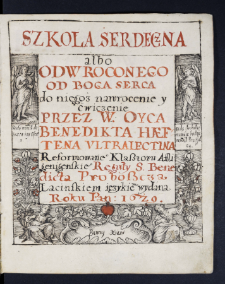 SZKOLA SERDECZNA
albo
ODWROCONEGO
OD BOGA SERCA
do niegoż nawrocenie y
cwiczenie
PRZEZ W. OYCA
BENEDIKTA HÆF
TENA ULTRAIECTINA
Reformowane Klasztoru Affli
genizenskie Reguły S. Bene
dicta Proboszcza
Łacińskiem ięzykie wydana
Roku Pan: 1629.